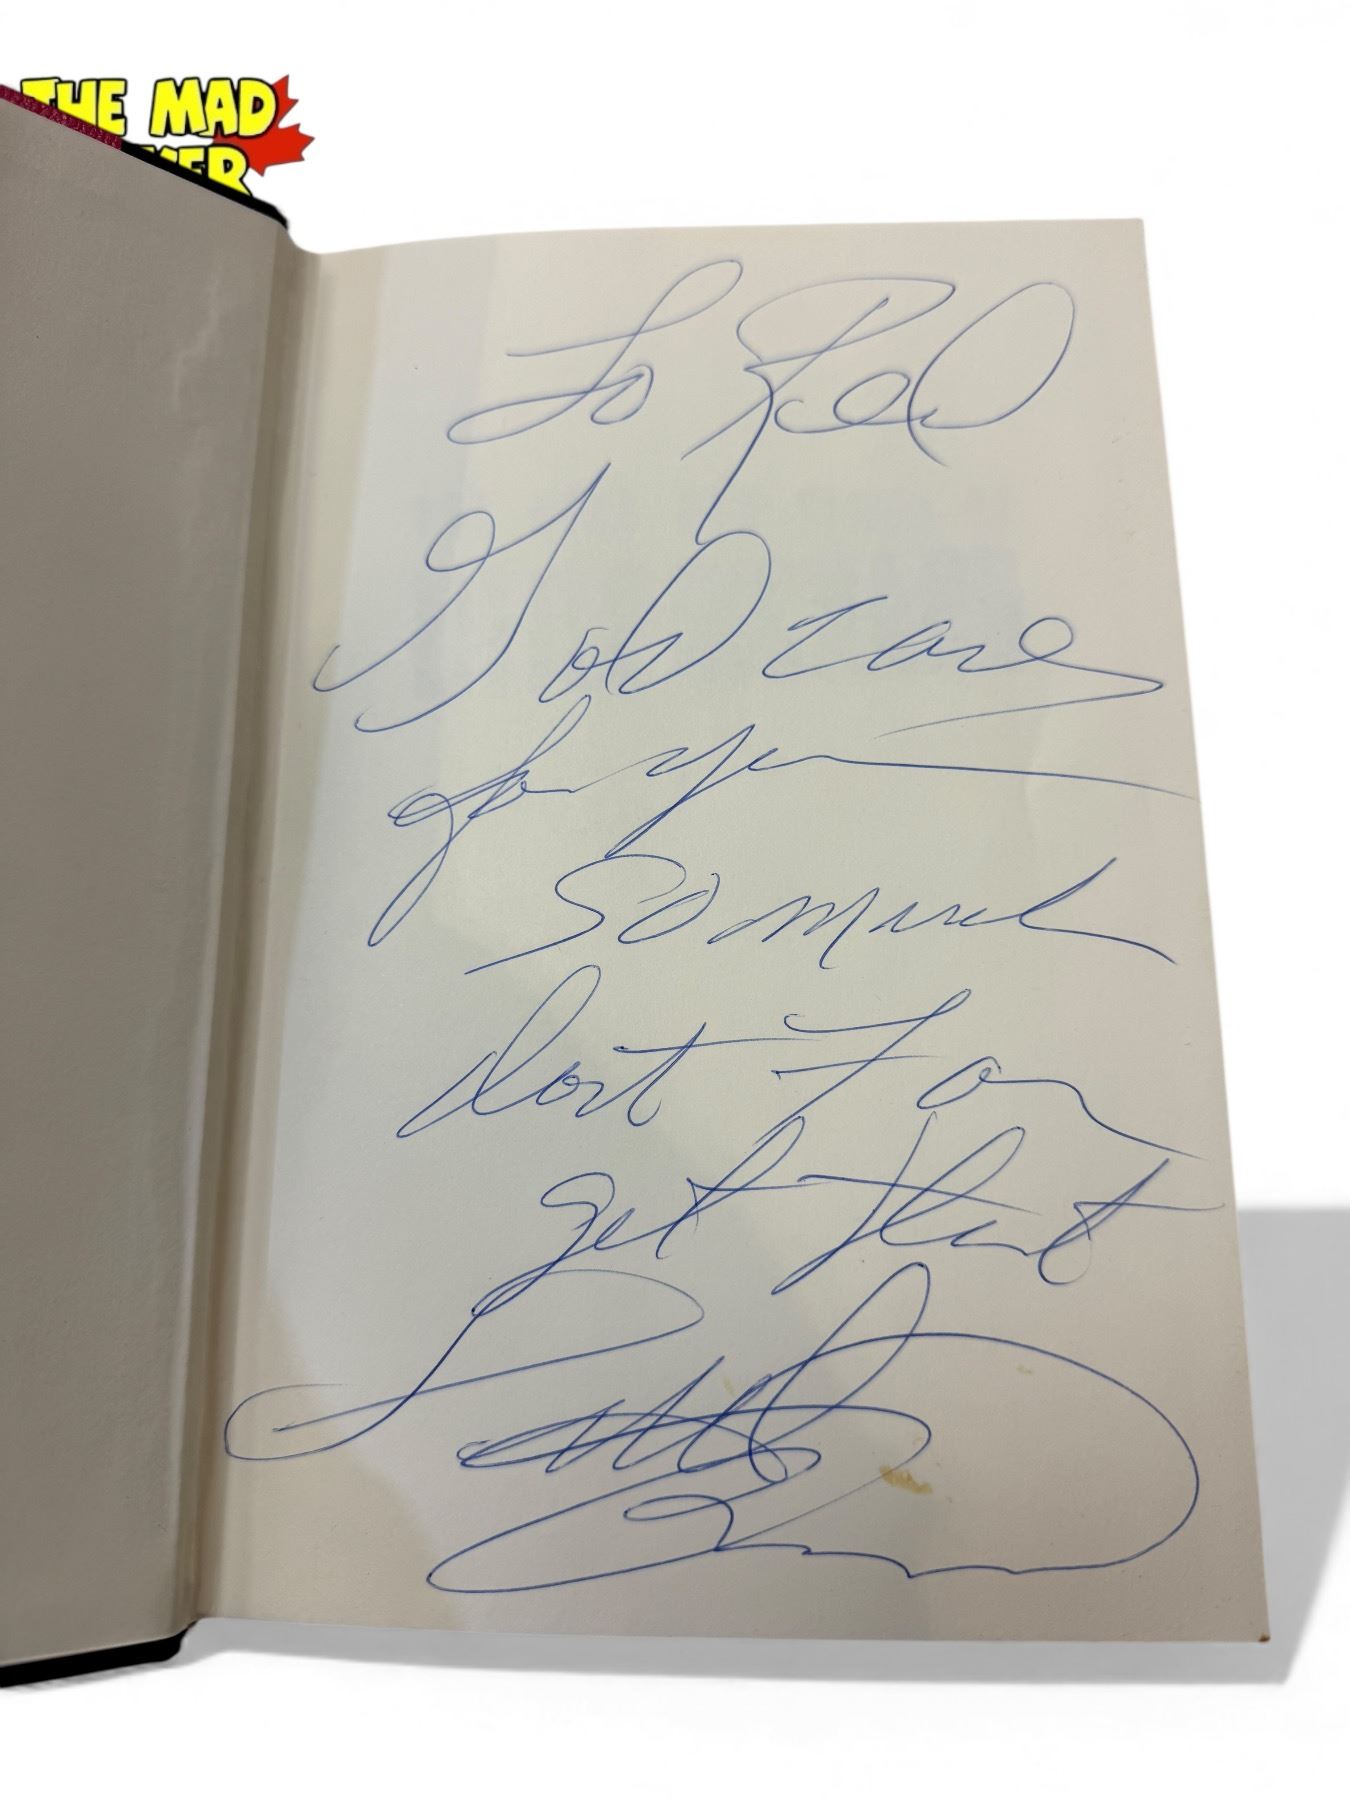 THE MAD
To Red
God Cares
for you
So Much
Dont For
get that